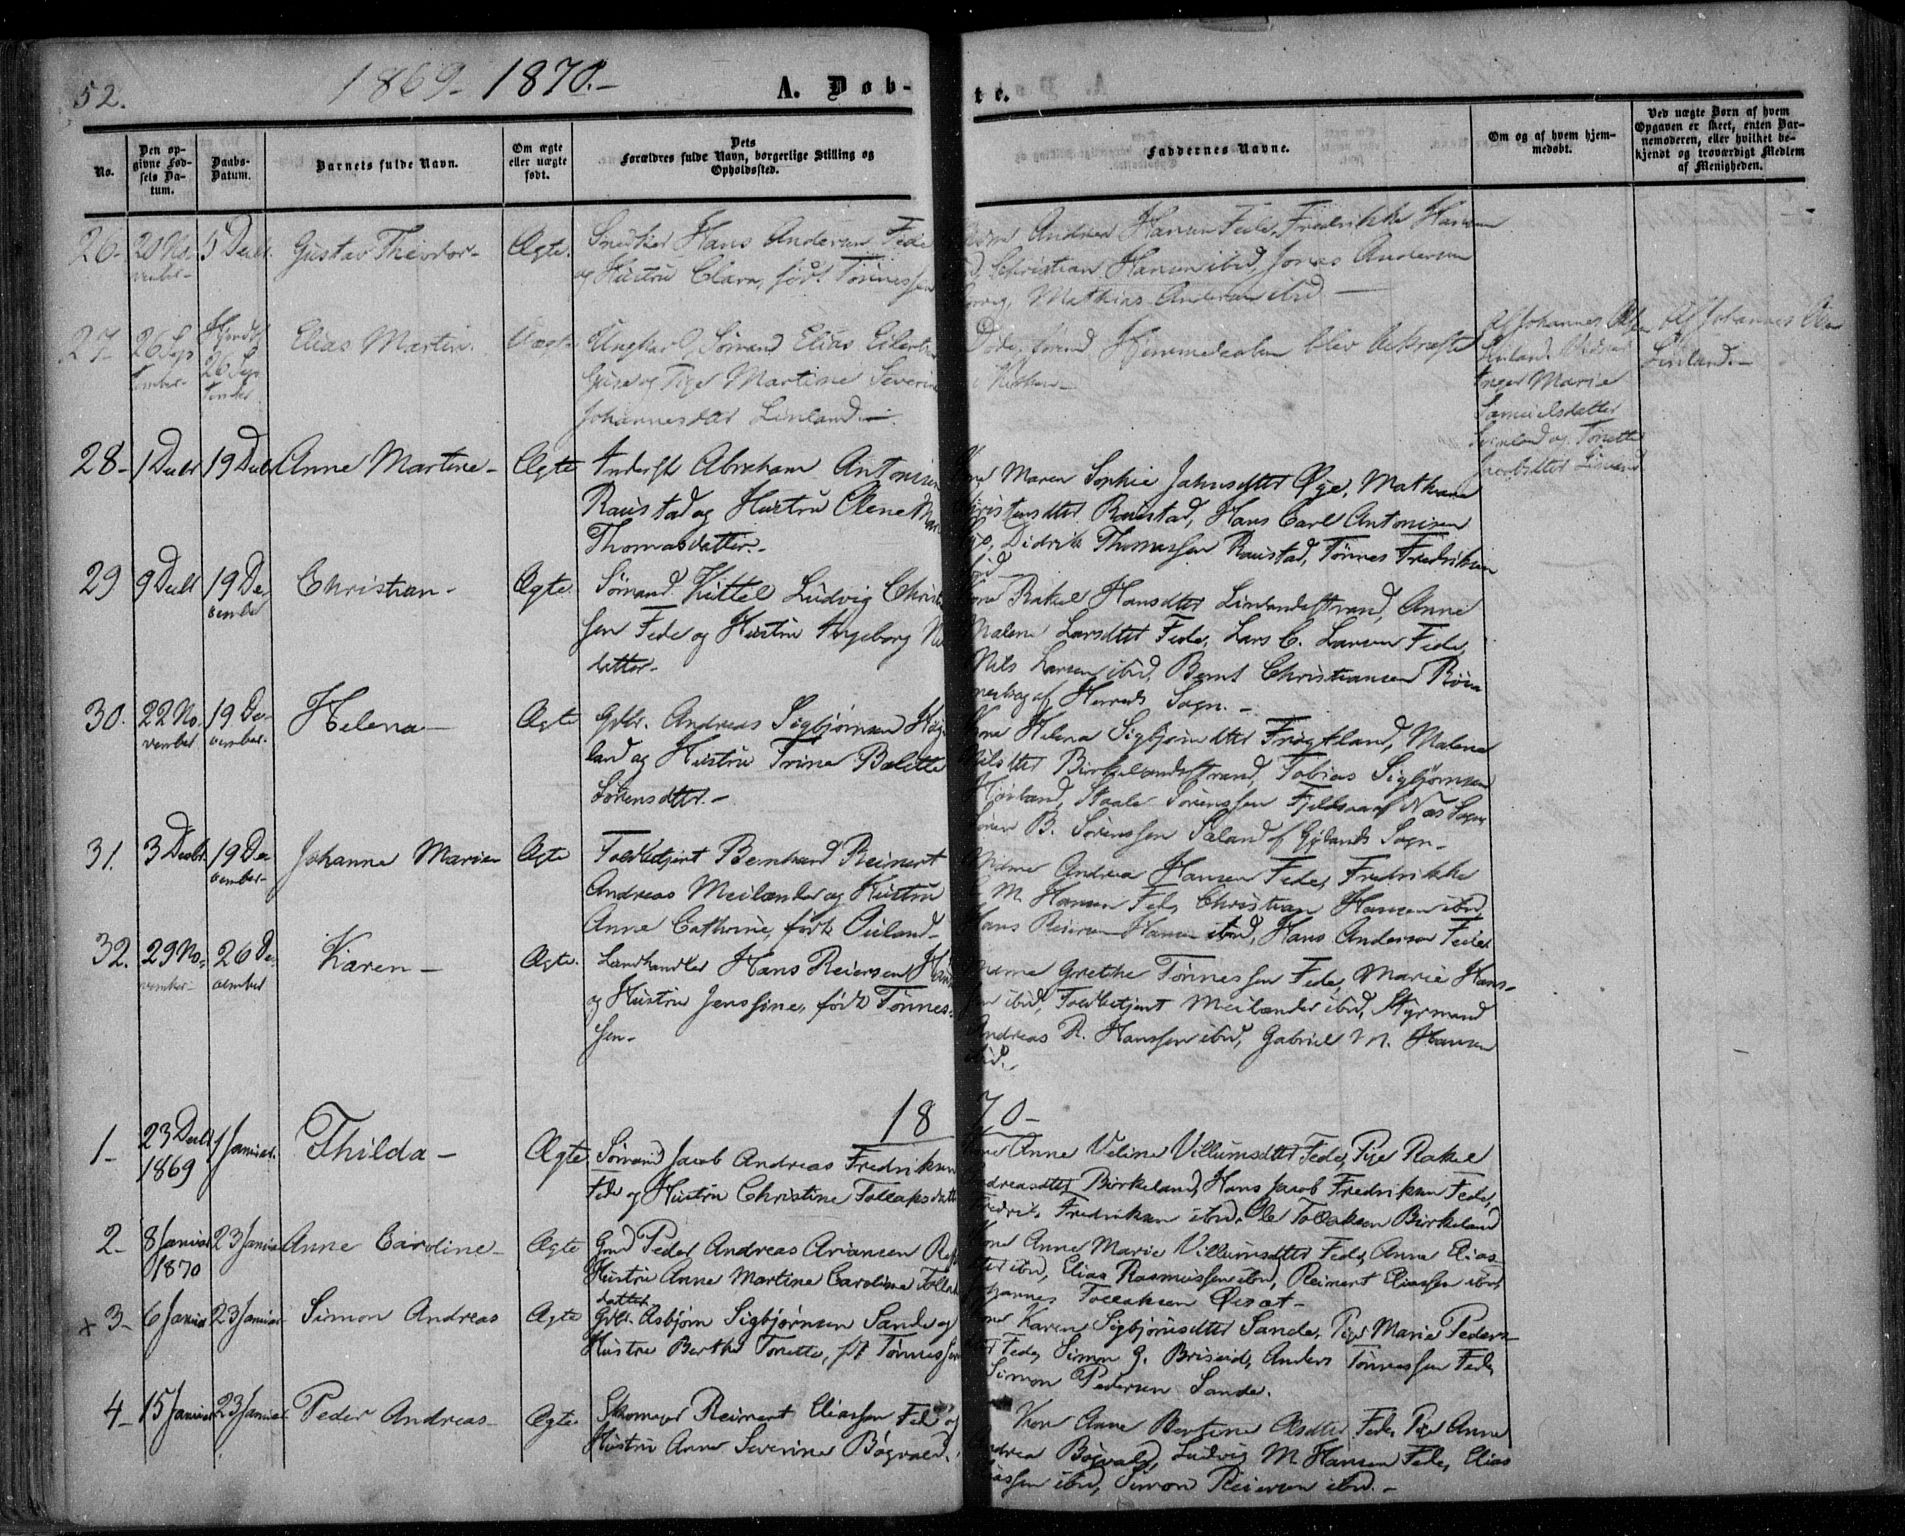 52.
1869-1870.-
A. Døb-
te.
No.
Den op-
givne Fød-
sels Da-
tum.
Daabs-
Datum.
Barnets fulde Navn.
Om ægte
eller uægte
født.
Dets
Forældres fulde Navn, borgerlige Stilling og
Opholdssted.
Faddernes Navne.
Om og af hvem hjem-
medøbt.
Ved uægte Børn af hvem
Opgaven er skeet, enten Bar-
nemoderen, eller hvilket be-
kjendt og troværdigt Medlem
af Menigheden.
26- 20 No-
vember- 5 Decbr. Gustav Theodor- Ægte. Snedker Hans Andersen Fede
og Hustru Clara, født Tønnessen
Andrea Hansen Fede, Fredrikke Hansen
Christian Hansen ibid, Jonas Andersen
Mathias Andersen ibid-
27- 26 Sep-
tember- Hjemdøbt
26 Sep-
tember Elias Martin. Uægte Ungkarl Sømand Elias Eilertsen
og Pige Martine Severine
Johannesdatter Linland-.
Hjemmedaaben blev bekræftet
i Kirken-
Af Johannes
Linland
Inger Marie
Samuelsdatter
Linland og Tonette
Af Johannes
Linland-
28- 1 Decbr 19 Decbr Anne Martine- Ægte Abraham Antonisen
Raustad og Hustru Elene
Thomasdatter.-
Maren Sophie Jahnsdtter Øye, Mathea
Raustad, Hans Carl Antonisen
Didrik Thomassen Raustad, Tønnes Fredriksen
ibid
29 9 Decbr 19 De-
cember Christian- Ægte. Sømand Kittel Ludvig Christ
sen Fede og Hustru Ingeborg
datter-
Kone Rakel Hansdtter Linlandsstrand, Anne
Malene Larsdtter Fede, Lars C. Larsen Fede,
Nils Larsen ibid, Bernt Christiansen
af Herreds Sogn.-
30. 22 No-
vember 19 De-
cember. Helena- Ægte Gbr. Andreas Sigbjørnsen
land og Hustru Trine Bolette
Sørensdtter.-
Kone Helena Sigbjørnsdtter Frøytland, Malene
Nilsdtter Birkelandsstrand, Tobias Sigbjørnsen
Staale Sørenssen Fjeldsaa af Næs Sogn
Søren B. Sørenssen Sæland af Gylands Sogn-
31. 3 Decbr 19 De-
cember- Johanne Marie Ægte Toldbetjent Bernhard Reinert
Andreas Meilænder og Hustru
Anne Cathrine, født Øieland-
Madame Andrea Hansen Fede, Fredrikke
M. Hansen Fede, Christian Hansen ibid,
Hans Reiersen Hansen ibid, Hans Andersen Fede
32. 29 No-
vember- 26 De-
cember Karen- Ægte. Landhandler Hans Reiersen
og Hustru Jenssine, født Tønnes-
sen-
Madame Grethe Tønnessen Fede, Marie Hans-
sen ibid, Toldbetjent Meilænder ibid, Styrmand
Andreas R. Hanssen ibid, Gabriel M. Hansen
ibid.-
1870-
1- 23 Decbr
1869 1 Januar Thilda- Ægte Sømand Jacob Andreas Fredriksen
Fede og Hustru Christine Tollaksdatter
Kone Anne Veline Villumsdtter Fede, Pige Rakel
Andreasdtter Birkeland, Hans Jacob Fredriksen Fede,
Fredrik Fredriksen ibid, Ole Tollaksen Birkeland
2- 8 Januar
1870 23 Januar Anne Caroline- Ægte Gmd Peder Andreas Ariansen
Hustru Anne Martine Caroline Tollaks
datter
Kone Anne Marie Villumsdtter Fede, Anne Elias
dtter ibid, Elias Rasmussen ibid, Reinert Eliassen ibid,
Johannes Tollaksen
x 3- 6 Januar 23 Januar Simon Andreas Ægte Gbr. Asbjørn Sigbjørnsen Sande og
Hustru Berthe Tonette, ft Tønnessen
Kone Karen Sigbjørnsdtter Sande, Pige Marie Peders-
dtter Fede, Simon G. Briseid, Anders Tønnessen Fede,
Simon Pedersen Sande.
4- 15 Januar 23 Januar Peder Andreas- Ægte. Skomager Reinert Eliassen Fede og
Hustru Anne Severine Bøgvald.
Kone Anne Bertine Olsdtter Fede, Pige Anne
Andrea Bøgvald, Ludvig M. Hansen Fede, Elias
Eliassen ibid, Simon Reiersen ibid.-